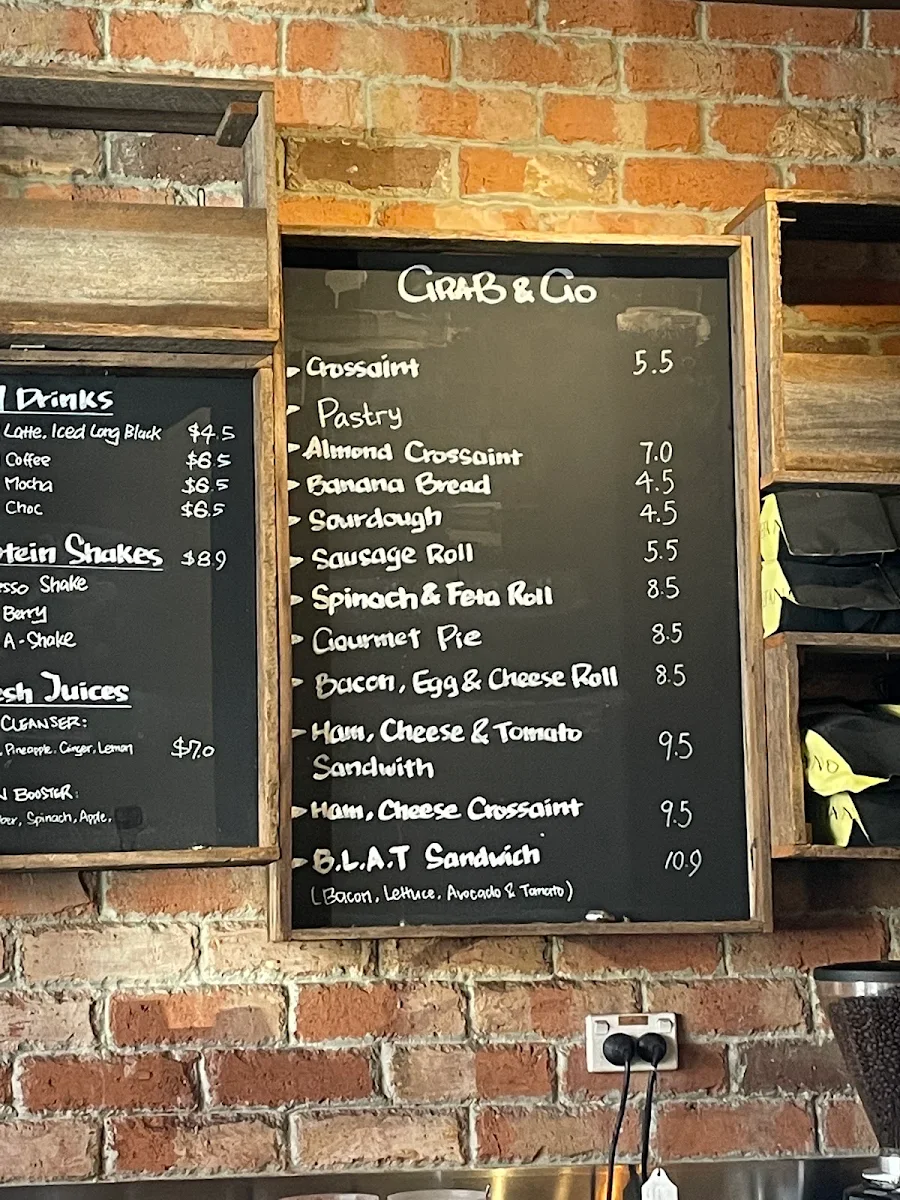 Drinks
Latte, Iced Long Black $4.5
Coffee $6.5
Mocha $6.5
Choc $6.5
Shakes $8.9
Shake
Berry
A-Shake
Juices
CLEANSER:
Pineapple, Ginger, Lemon $7.0
BOOSTER:
Spinach, Apple,
GRAB & GO
Crossaint 5.5
Pastry
Almond Crossaint 7.0
Banana Bread 4.5
Sourdough 4.5
Sausage Roll 5.5
Spinach & Feta Roll 8.5
Gourmet Pie 8.5
Bacon, Egg & Cheese Roll 8.5
Ham, Cheese & Tomato 9.5
Sandwith
Ham, Cheese Crossaint 9.5
B.L.A.T Sandwich 10.9
(Bacon, Lettuce, Avocado & Tomato)